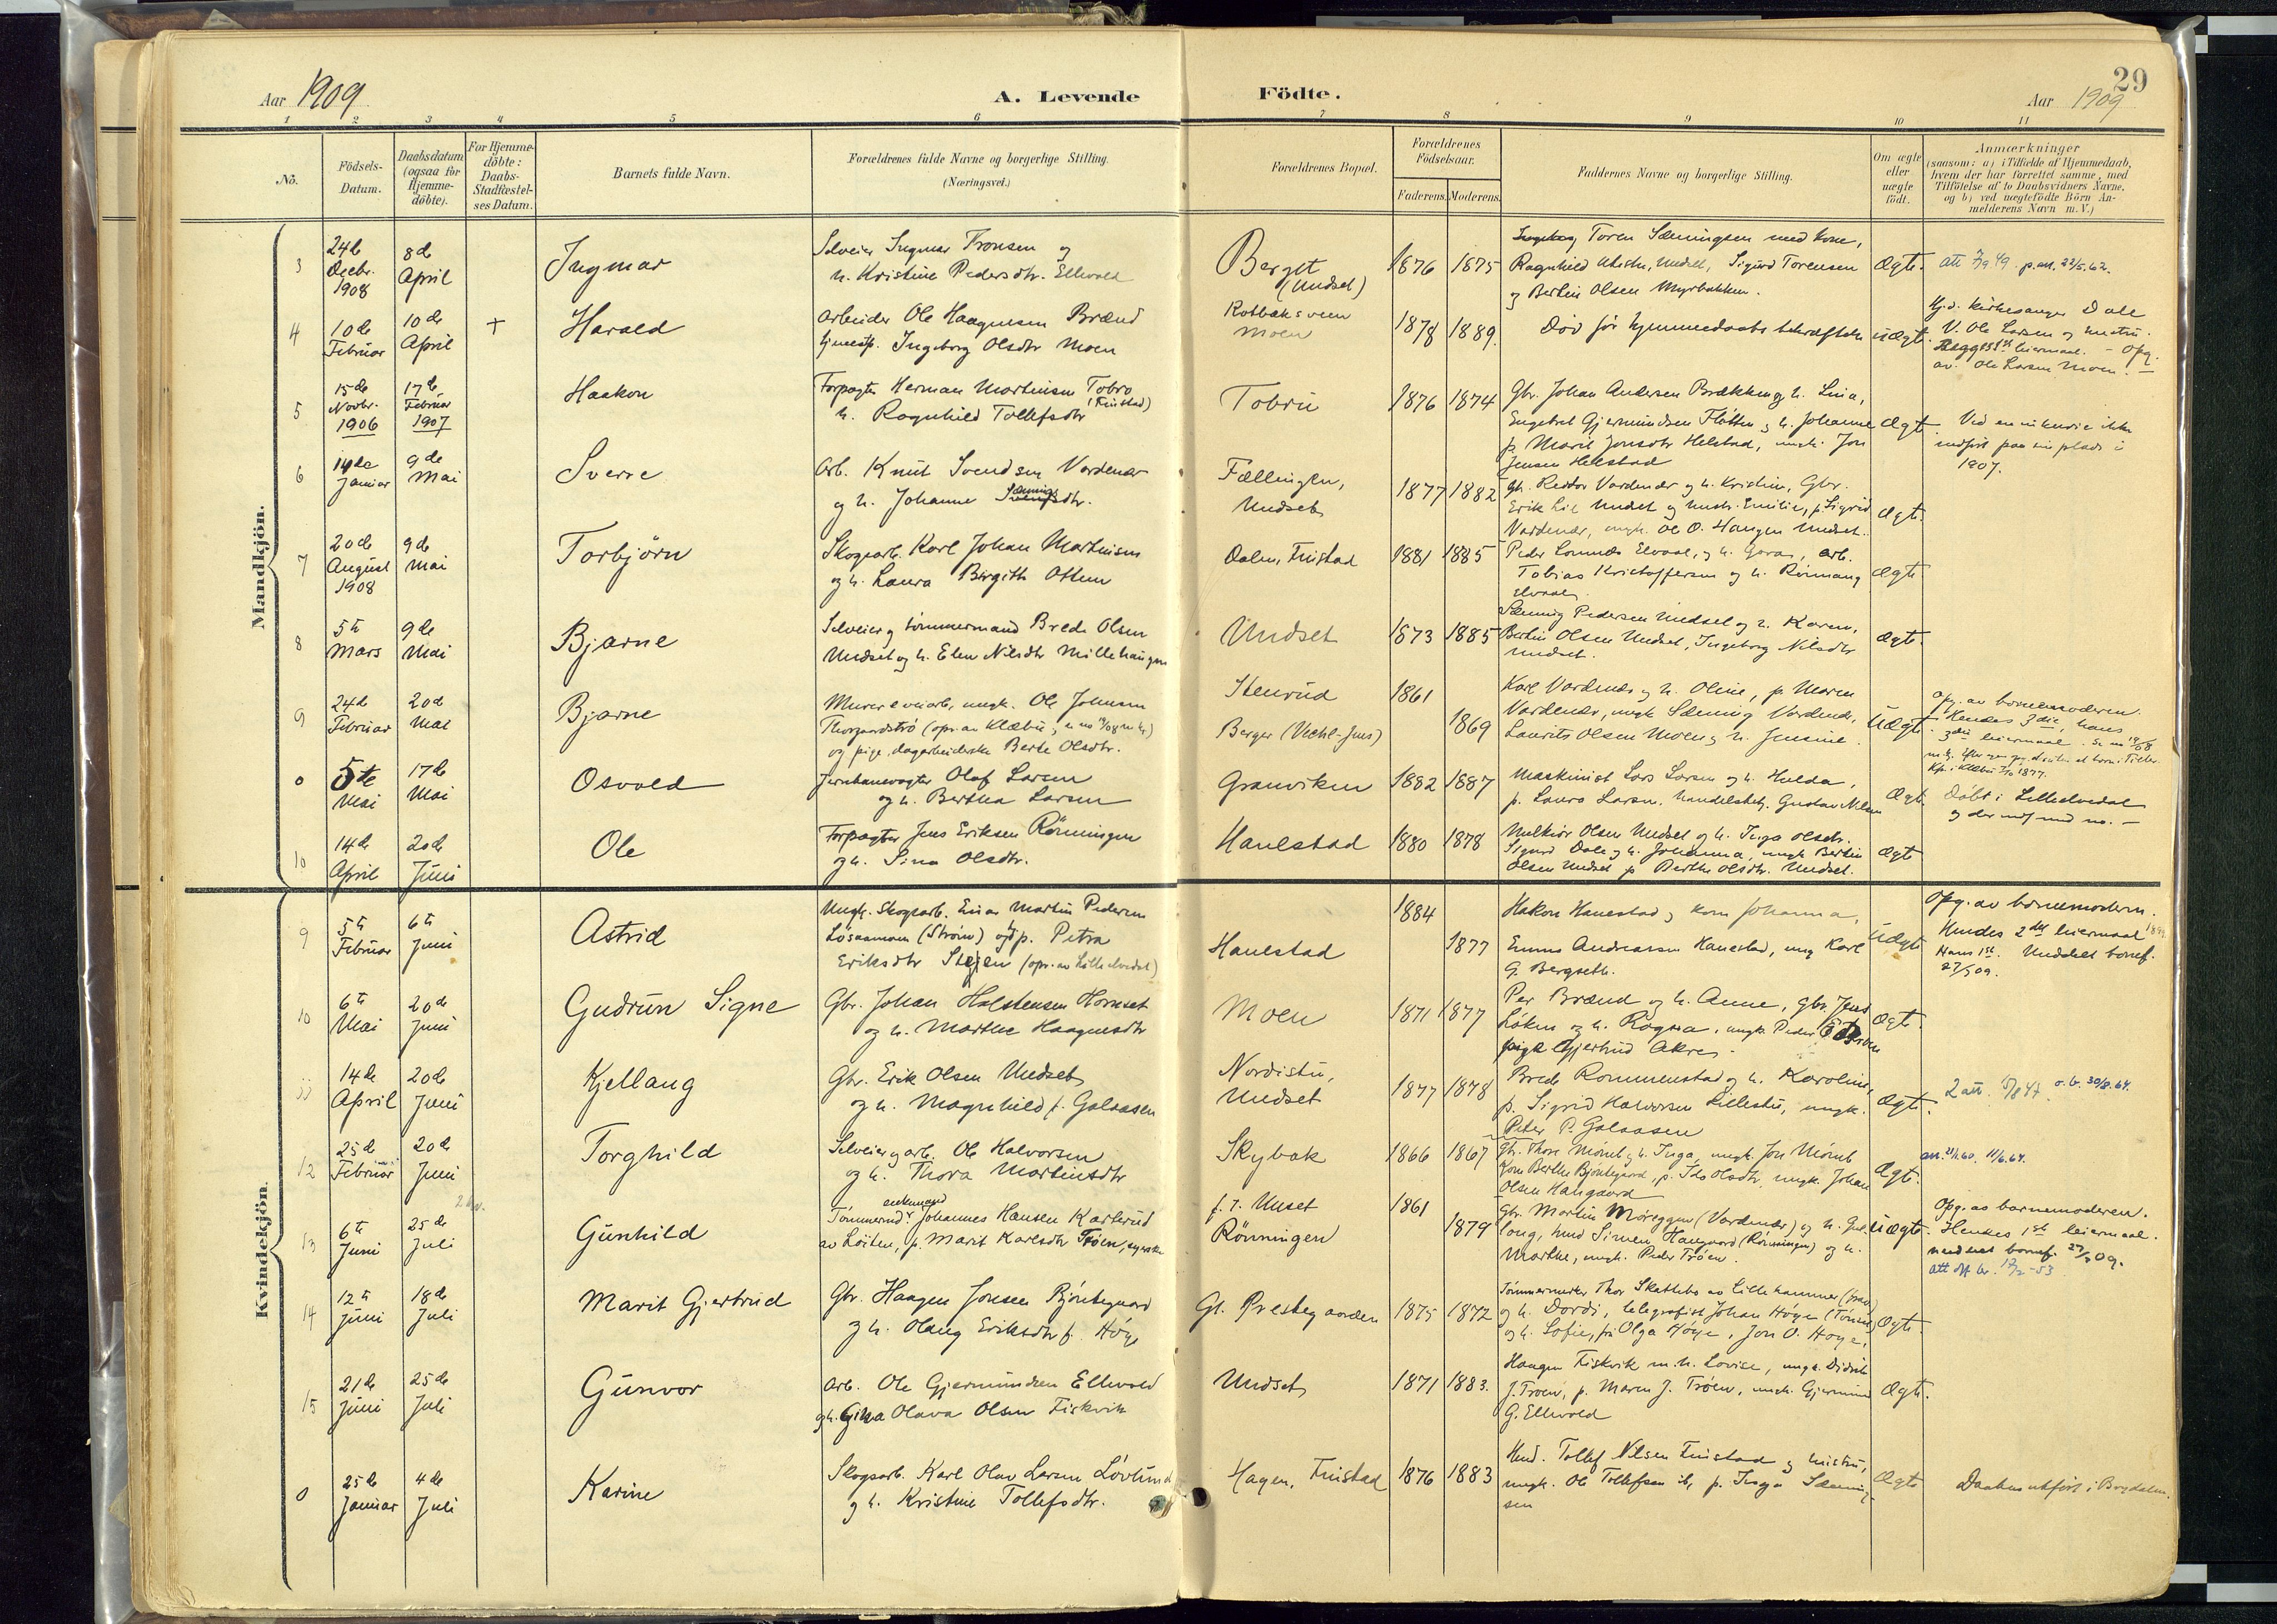 29
Aar 1909
A. Levende
Födte.
Aar 1909
1 2 3 4 5 6 7 8 9 10 11
No.
Födsels-
Datum.
Daabsdatum
(ogsaa for
Hjemme-
döbte).
For Hjemme-
döbte:
Daabs-
Stadfæstel-
ses Datum.
Barnets fulde Navn.
Forældrenes fulde Navne og borgerlige Stilling.
(Næringsvei.)
Forældrenes Bopæl.
Forældrenes
Födselsaar.
Faderens. Moderens.
Faddernes Navne og borgerlige Stilling.
Om ægte
eller
uægte
födt.
Anmærkninger
(saasom: a) i Tilfælde af Hjemmedaab,
hvem der har forrettet samme, med
Tilföielse af to Daabsvidners Navne,
og b) ved uægtefödte Börn An-
melderens Navn m. V.)
Mandkjön.
3
24de
Decbr.
1908
8de
April
Ingmar
Selveier Ingmar Tronsen og
h. Kristine Pedersdtr. Ellevold
Berget
(Undset)
1876 1875
Toren Sæmingsen med kone,
Ragnhild Undset, Sigurd Torensen
og Berlin Olsen Myrbakken.
Ægte.
4
10de
Februar
10de
April
+
Harald
Arbeider Ole Haagensen Brænd
tjenestp. Ingeborg Olsdtr Moen
Moen
1878 1889.
Død før hjemmedaabs bekræftelse
uægt.
Hj.d. kirkesanger Dale
V. Ole Larsen og hustru.
Begges 1st leiermaal. - Opg.
av Ole Larsen Moen.
5
15de
Novbr.
1906
17de
Februar
1907
Haakon
Forpagter Herman Martinsen Tobro
(Finstad)
h. Ragnhild Tollefsdtr
Tobru
1876 1874
Gbr. Johan Andersen Brækken og h. Lina,
Engebret Gjermundsen Fløtten og h. Johanne
p. Marit Jonsdtr Helstad, ungk. Jon
Jensen Helstad
Ægte
Ved en inkurie ikke
indført paa sin plads i
1907.
6
14de
Januar
9de
Mai
Sverre
Arb. Knut Svendsen Vardenær
og h. Johanne Sæmingsdtr.
Fællingen,
Undset
1877 1882
Gbr. Restor Vardenær og h. Kristin, Gbr.
Erik Lie Undset og hustr. Emilie, p. Sigrid
Vardenær, ungk. Ole O. Haugen Undset.
Ægte.
7
20de
August
1908
9de
Mai
Torbjörn
Skogsarb. Karl Johan Martinsen
og h. Laura Birgith Ottem
Dalen, Finstad
1881 1885
Peder Elvaal, og h. Goro, arb.
Tobias Kristoffersen og h. Rönnaug
Elvaal.
Ægte.
8
5te
Mars
9de
Mai
Bjarne
Selveier og tömmermand Brede Olsen
Undset og h. Elen Nilsdtr Millehaugen
Undset
1873 1885
Sæming Pedersen Undset og h. Karen,
Berlin Olsen Undset, Ingeborg Nilsdtr
Undset.
Ægte.
9
24de
Februar
20de
Mai
Bjarne
Murer & veiarb., ungk. Ole Johnsen
og pige, dagarbeiderske Berte Olsdtr.
Stenrud
Berger
1861
1869
Karl Vardenær og h. Oline, p. Maren
Vardenær, ungk. Sæming Vardenær,
Laurits Olsen Moen og h. Jensine.
Uægte.
Opg. av barnemoderen.
Hendes 3die, hans
3die leiermaal.
0
5te
Mai
17de
Mai
Osvald
Jernbanevogter Olof Larsen
og h. Bertha Larsen
Granviken
1882 1887
Maskinist Lars Larsen og h. Hulda,
p. Laura Larsen, handelsbetj. Gustav Nilsen
Ægte.
Döbt i Lilleelvedal
og der indf med no. -
10
14de
April
20de
Juni
Ole
Forpagter Jens Eriksen Rönningen
og h. Sina Olsdtr.
Hanestad
1880 1878
Melkior Olsen Undset og h. Inga Olsdtr.
Sigurd Dale og h. Johanna, ungk. Berlin
Olsen Undset p. Berthe Olsdtr. Undset.
Ægte
Kvindekjön.
9
5te
Februar
6te
Juni
Astrid
Ungk. Skogsarb. Einar Martin Pedersen
(Ström) og p. Petra
Eriksdtr Steien (opr. av Lilleelvedal)
Hanestad
1884
1877
Hakon Hanestad og kone Johanna,
Emma Andreassen Hanestad, ung Karl
G. Bergseth.
Uægte
Opg. av barnemoderen.
Hendes 2det leiermaal
Hans 1st. Meddelt barnef.
27/5 09.
10
6te
Mai
20de
Juni
Gudrun Signe
Gbr. Johan Halstensen Hornset
og h. Marthe Haagensdtr
Moen
1871 1877
Per Brænd og h. Anne, Gbr. Jens
Löken og h. Ragna, ungk. Peder
pige Gjertrud Akre.
Ægte.
11
14de
April
20de
Juni
Kjellaug
Gbr. Erik Olsen Undset
og h. Magnhild f. Galaasen
Nordistu,
Undset
1877 1878
Brede Rommenstad og h. Karoline,
p. Sigrid Halvorsen Lillestu, ungk.
Peter P. Galaasen
Ægte.
2 att. 15/8 47. o. b. 30/8.64.
12
25de
Februar
20de
Juni
Torghild
Selveier og arb. Ole Halvorsen
og h. Thora Martinsdtr
Skybak
1866 1867
Gbr. Thore Mömb og h. Inga, ungk. Jon Mömb
Kone Berthe Björkegaard, p. Ida Olsdtr, ungk. Johan
Olsen Haugaard
Ægte.
att. 21/1.60. 11/6.64.
13
6te
Juni
25de
Juli
Gunhild
enkemand
Tömmermd. Johannes Hansen Karterud
av Löiten, p. Marit Karlsdtr Tröen, syerske
f. t. Unset
Rönningen
1861
1879
Gbr. Martin (Vardenær) og h. Gul-
laug, hmd Simen Haugaard (Rönningen) og h.
Marthe, ungk. Peder Tröen.
Uægte.
Opg. av barnemoderen.
Hendes 1st leiermaal.
Meddelt barnef. 27/7 09.
Att off br. 12/2-53
14
12te
Juni
18de
Juli
Marit Gjertrud
Gbr. Haagen Jonsen Björkegaard
og h. Olaug Eriksdtr f. Höye
Gl. Prestegaarden
1875 1872
Tömmermerker Thor Skattebo av Lillehammer
og h. Dordi, telegrafist Johan Höye (Tönset)
og h. Sofie, frk Olga Höye, Jon O. Höye.
Ægte.
15
21de
Juni
25de
Juli
Gunvor
Arb. Ole Gjermundsen Ellevold
og h. Gina Olava Olsen Fiskvik
Undset
1871 1883.
Haagen Fiskvik m. h. Lovise, ungk. Didrik
J. Tröen, p. Maren J. Tröen, ungk. Gjermund
G. Ellevold
Ægte.
0
25de
Januar
4de
Juli
Karine
Skogsarb. Karl Olav Larsen Lövlund
og h. Kristine Tollefsdtr.
Hagen, Finstad
1876 1883
Hmd. Tollef Nilsen Finstad og hustru,
ungk. Ole Tollefsen ib, p. Inga Sæming-
sen
Ægte
Daaben utfört i Brydalen.